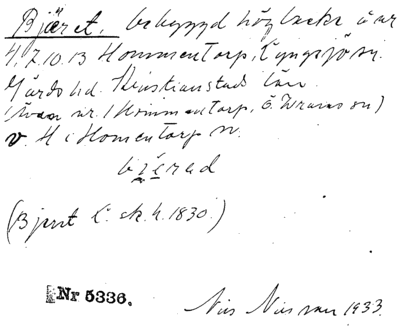 Bjäret. bebyggd högbacke å nr
4, 7, 10, 13 Hommentorp, Lyngsjö sn.
Gärds hd. Kristianstads län.
(Även nr. 1 Hommentorp, Ö. Vram sn)
v. H i Homentorp n.
bjerad
(Bjeret L. sk. h. 1830.)
Nr 5336.
Nils Nilsson 1933.